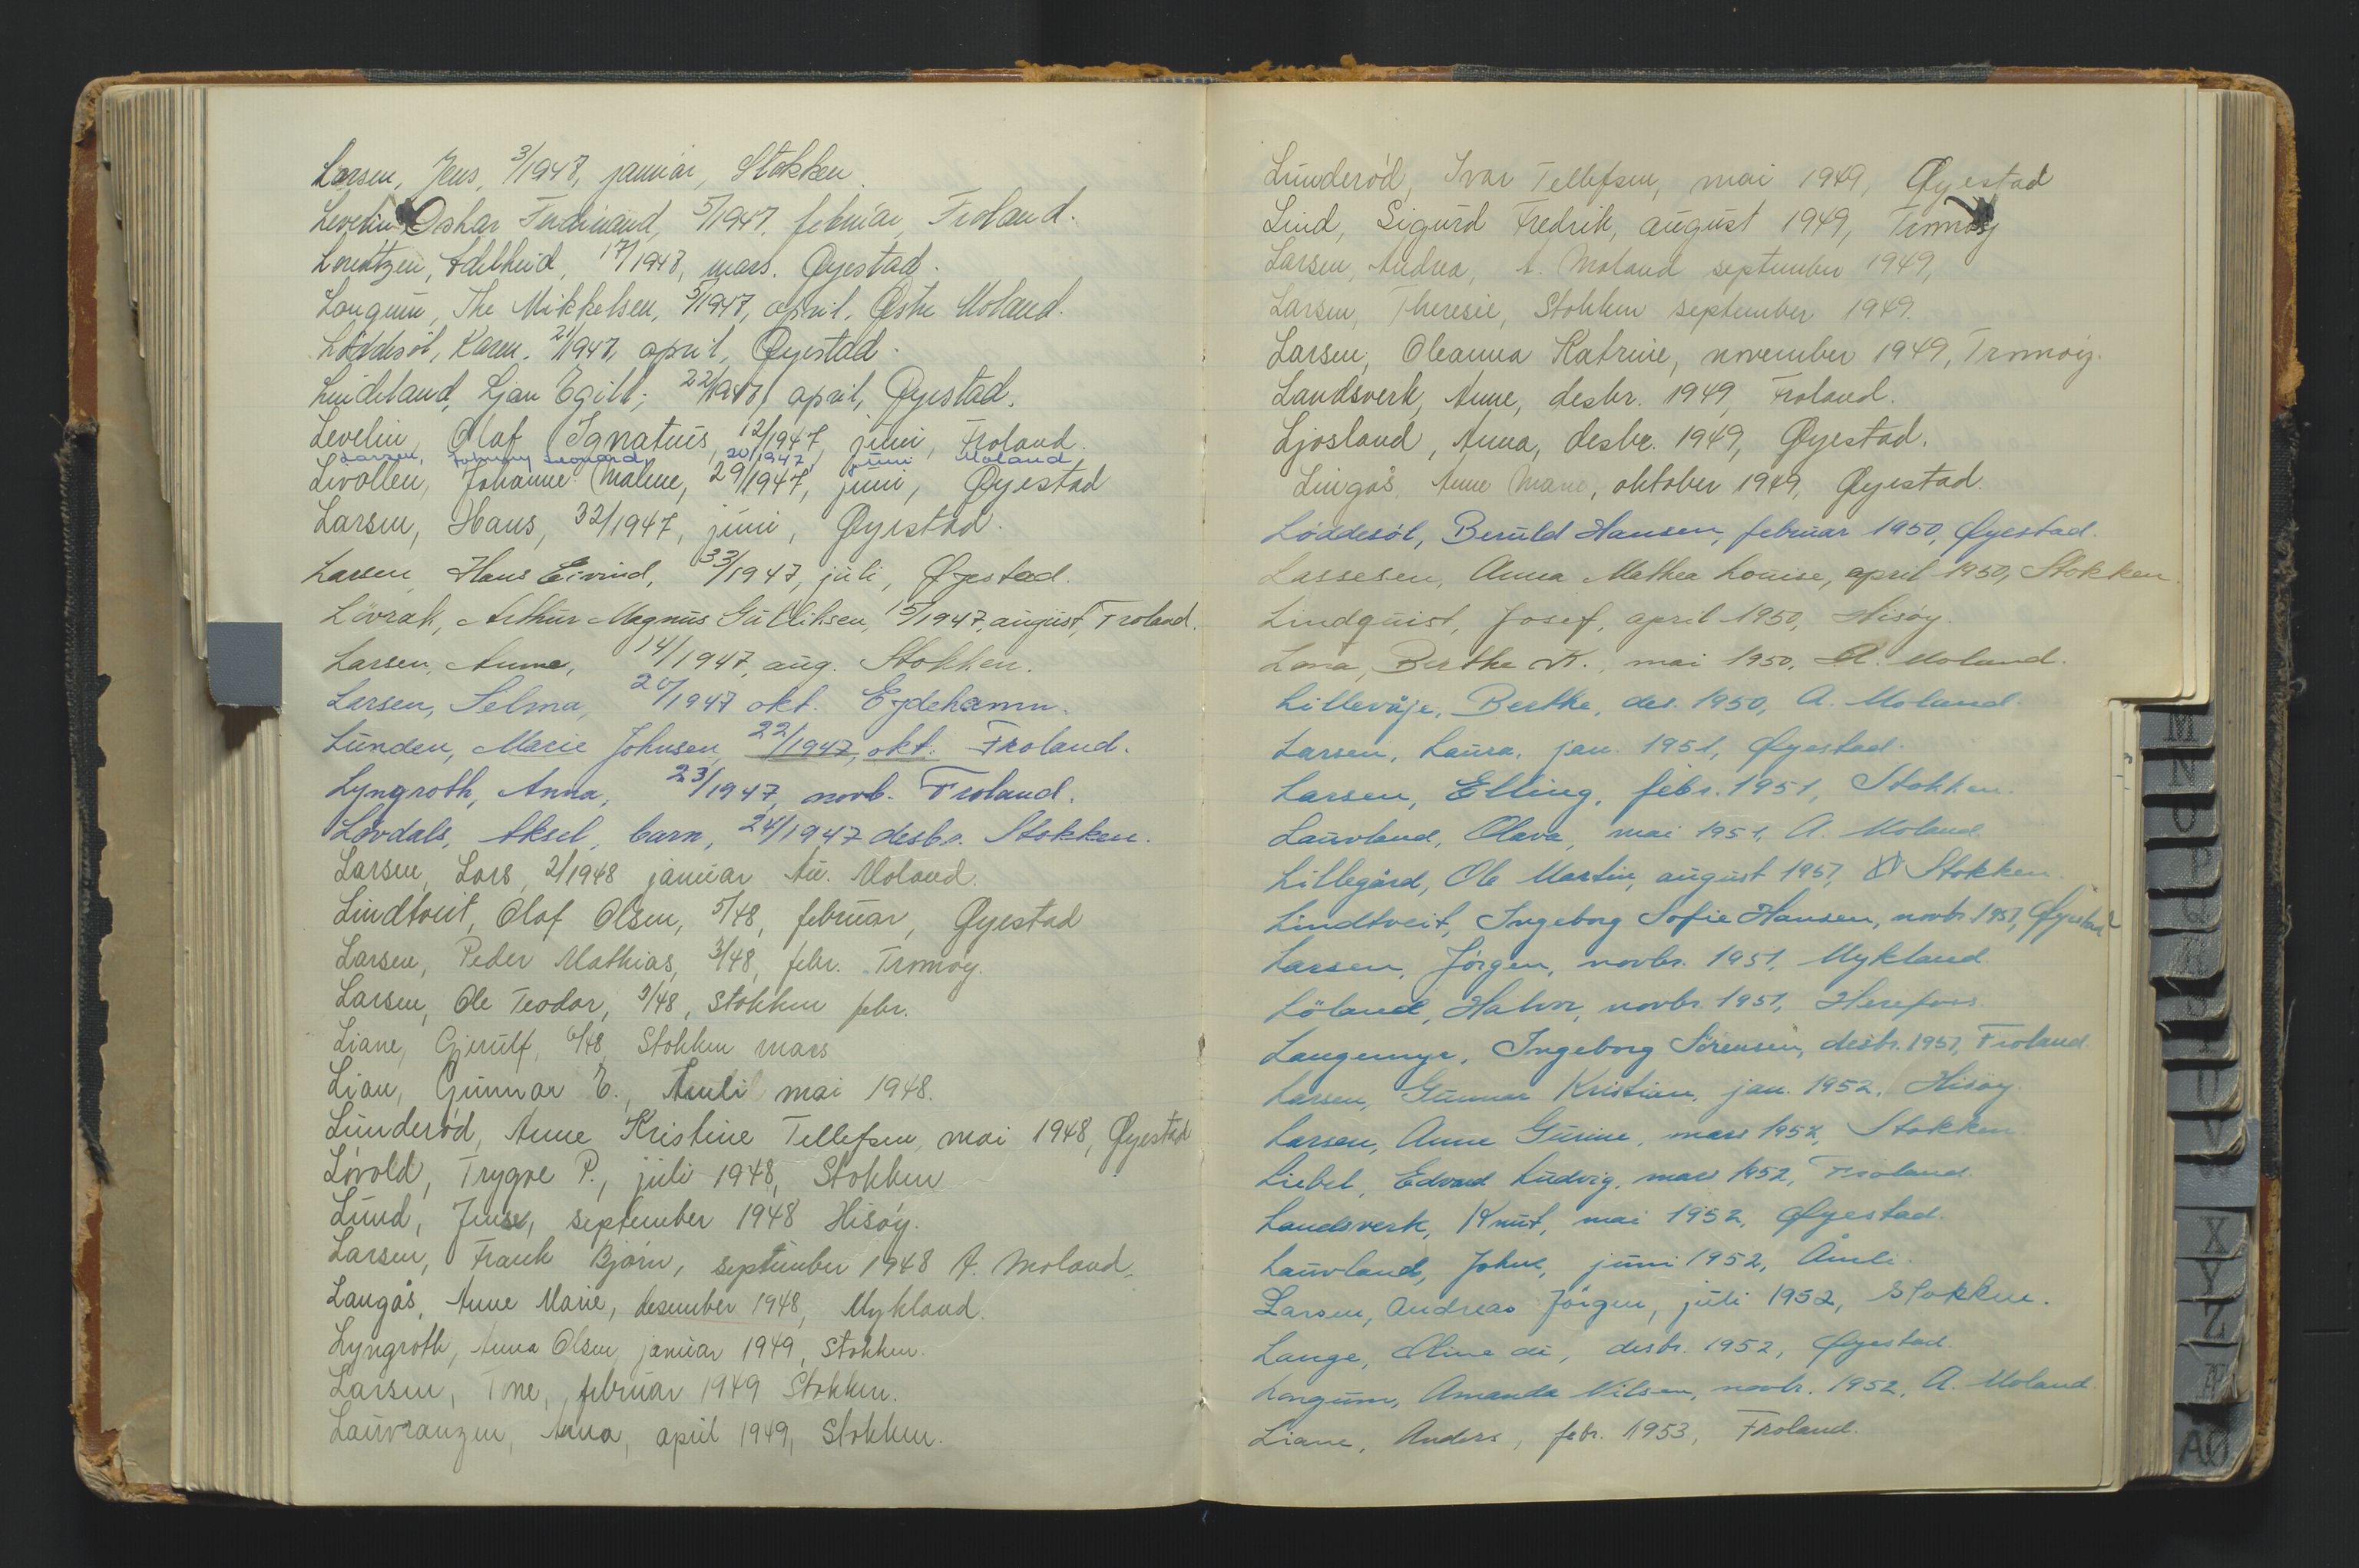 Larsen, Jens, 3/1947, januar, Stokken
Levelin Oskar Ferdinand, 5/1947, februar, Froland.
Lorentzen, Adelheid, 17/1947, mars. Øyestad.
Langum, The Mikkelsen, 5/1947, april, Østre Moland.
Løddesøl, Karen, 21/1947, april, Øyestad.
Lindeland, Ljan Egill, 22/1947, april, Øyestad.
Levelin, Olaf Ignatius, 12/1947, juni, Froland.
Larsen, Johnny Leonard, 20/1947, juni Moland,
Livollen, Johanne Maline, 29/1947, juni, Øyestad
Larsen, Hans, 32/1947, juni, Øyestad.
Larsen, Hans Eivind, 33/1947, juli, Øyestad.
Lövrak, Arthur Magnus Gulliksen, 15/1947, august, Froland.
Larsen, Anna, 14/1947, aug. Stokken.
Larsen, Selma, 20/1947 okt. Eydehamn.
Lunden, Marie Johnsen, 22/1947, okt. Froland.
Lyngroth, Anna, 23/1947, novb. Froland.
Lövdals, Aksel, barn, 24/1947 desbr. Stokken.
Larsen, Lars, 2/1948 januar Au. Moland.
Lindtveit, Olaf Olsen, 5/48, februar, Øyestad
Larsen, Peder Mathias, 3/48, febr. Tromøy.
Larsen, Ole Teodor, 3/48, Stokken febr.
Liane, Gjerulf, 6/48, Stokken mars
Lian, Gunnar E., Åmli mai 1948.
Lunderød, Anne Kristine Tellefsen, mai 1948, Øyestad
Løvold, Trygve P., juli 1948, Stokken
Lund, Jense, september 1948 Hisøy.
Larsen, Frank Bjørn, september 1948 A. Moland.
Langås, Anne Marie, desember 1948, Mykland.
Lyngroth, Anna Olsen, januar 1949, Stokken.
Larsen, Tone, februar 1949 Stokken.
Lauvranzen, Anna, april 1949, Stokken.
Lunderød, Ivar Tellefsen, mai 1949, Øyestad
Lind, Sigurd Fredrik, august 1949, Tromøy
Larsen, Andrea, A. Moland september 1949,
Larsen, Theresie, Stokken september 1949.
Larsen, Oleanna Katrine, november 1949, Tromøy.
Landsverk, Anne, desbr. 1949, Froland.
Ljosland, Anna, desbr. 1949, Øyestad.
Lingås, Anne Marie, oktober 1949, Øyestad.
Löddesöl, Beruld Hansen, februar 1950, Øyestad.
Lassesen, Anna Mathea Louise, april 1950, Stokken.
Lindquist, Josef, april 1950, Hisøy.
Lona, Berthe K., mai 1950, A. Moland.
Lilleväje, Berthe, des. 1950, A. Moland.
Larsen, Laura, jan. 1951, Øyestad.
Larsen, Elling, febr. 1951, Stokken.
Lauvland, Olava, mai 1951, A. Moland
Lillegård, Ole Martin, august 1951, Stokken
Lindtveit, Ingeborg Sofie Hansen, novbr 1951, Øyestad
Larsen, Jörgen, novbr. 1951, Mykland.
Löland, Halvor, novbr. 1951, Herefoss
Langemyr, Ingeborg Sörensen, desbr. 1951, Froland.
Larsen, Gunnar Kristian, jan. 1952, Hisöy
Larsen, Anne Gurine, mars 1952, Stokken
Liebel, Edvard Ludvig, mars 1952, Froland.
Landsverk, Knut, mai 1952, Øyestad.
Lauvland, Johne, juni 1952, Åmli.
Larsen, Andreas Jörgen, juli 1952, Stokken.
Lange, Oline de, desbr. 1952, Øyestad.
Longum, Amanda Nilsen, novbr. 1952, A. Moland
Liane, Anders, febr. 1953, Froland.
M
N
O
P
U
V
X
Y
Z
Æ
AØ